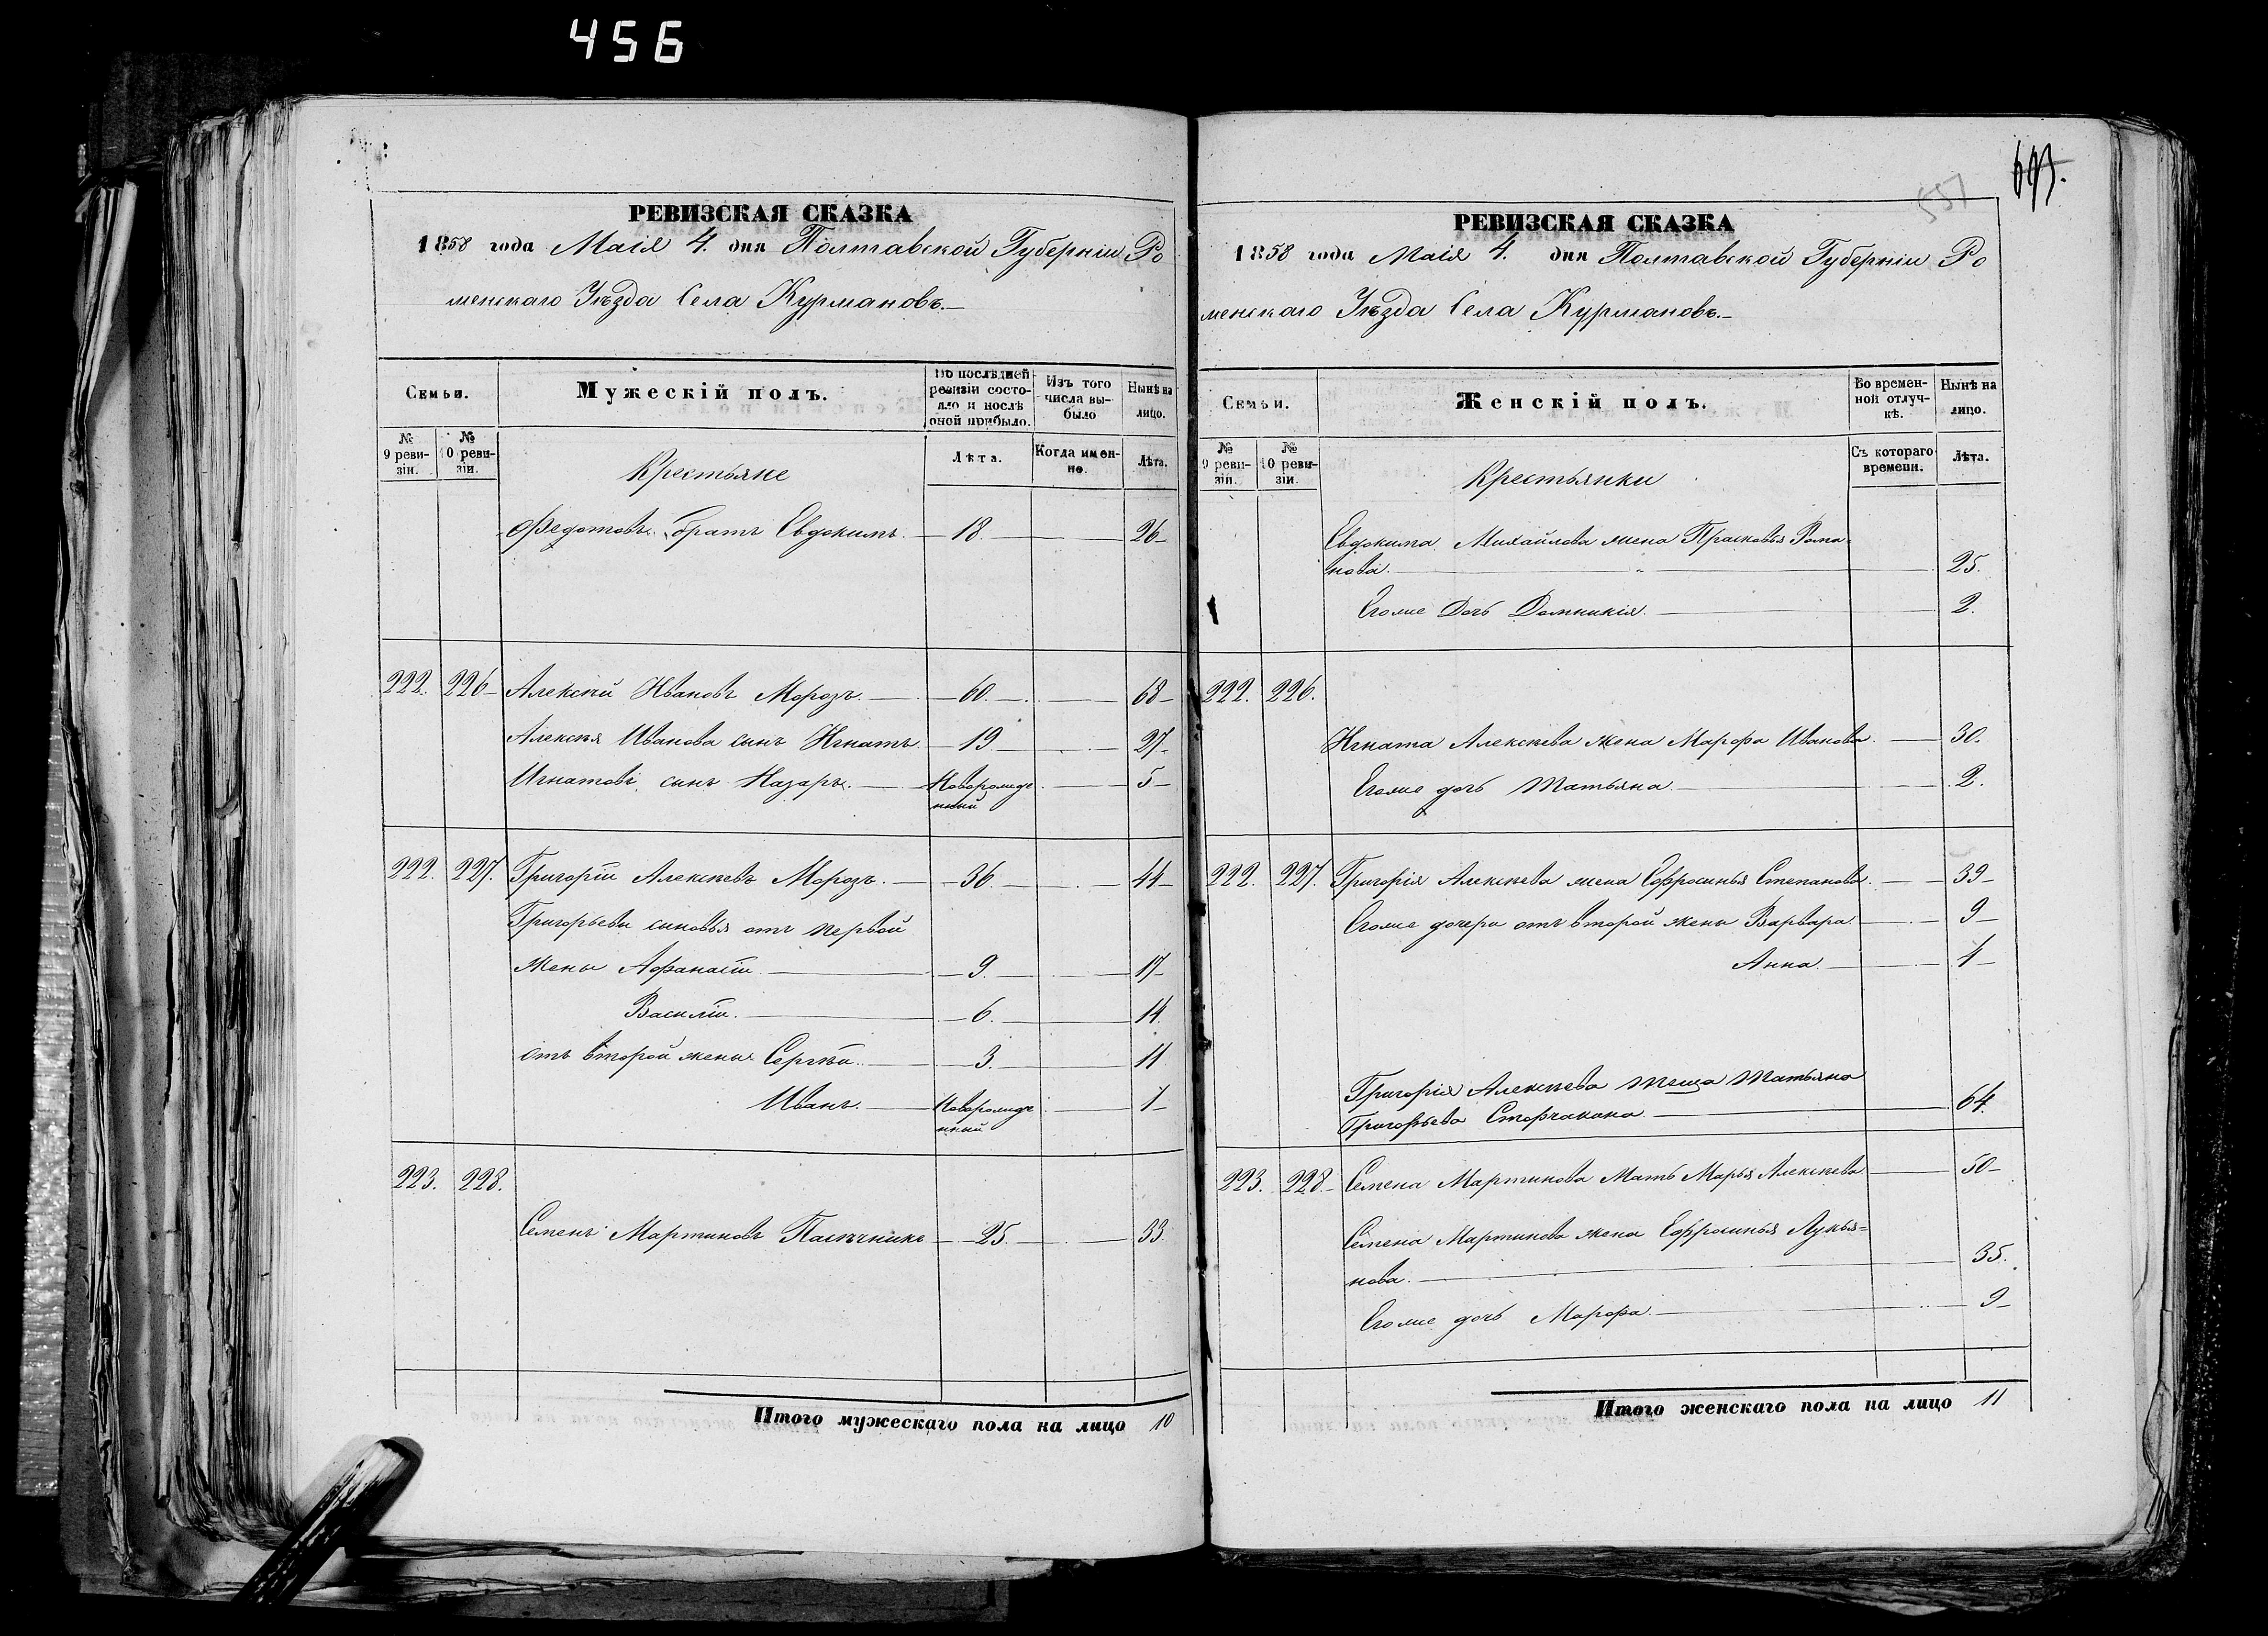 456
РЕВИЗСКАЯ СКАЗКА
1858 года Маія 4. дня Полтавской Губерніи Ро
менскаго Уѣзда Села Курмановъ.
Семьи.
Мужескій полъ.
По послѣдней ревизіи состояло и послѣ оной прибыло.
Изъ того числа выбыло
Нынѣ на лицо.
№ 9 ревизіи.
№ 10 ревизіи.
Крестьяне
Лѣта.
Когда именно.
Лѣта.
Федотовъ братъ Евдокимъ. 18. 26
222. 226 Алексѣй Ивановъ Морозъ. 60. 68
Алексѣя Иванова сынъ Игнатъ 19 27
Игнатовъ сынъ Назаръ. Новорожде 5
нный
222. 227. Григорій Алексѣевъ Морозъ. 36. 44
Григорьевы сыновья отъ первой
жены Афанасій 9. 17
Василій. 6. 14.
отъ второй жены Сергѣй. 3. 11
Иванъ. Новорожде 1
нный
223. 228.
Семенъ Мартиновъ Пасѣчникъ 25. 33.
Итого мужескаго пола на лицо 10
557
РЕВИЗСКАЯ СКАЗКА
1858 года Маія 4. дня Полтавской Губерніи Ро
менскаго Уѣзда Села Курмановъ.
Семьи.
Женскій полъ.
Во временной отлучкѣ.
Нынѣ на лицо.
№ 9 ревизіи.
№ 10 ревизіи.
Крестьянки
Съ котораго времени.
Лѣта.
Евдокима Михайлова жена Прасковья Рома=
нова. " 25.
Егоже Дочь Домникія. 2.
222. 226.
Игната Алексѣева жена Марфа Иванова. 30.
Егоже дочь Татьяна. 2.
222. 227. Григорія Алексѣева жена Ефросинья Степанова. 39
Егоже дочери отъ второй жены Варвара. 9
Анна. 4
Григорія Алексѣева теща Татьяна
Григорьева 64.
223. 228 Семена Мартинова Мать Марья Алексѣева 50
Семена Мартинова жена Ефросинья Лукья=
нова. 35.
Егоже дочь Марфа. 9
Итого женскаго пола на лицо 11